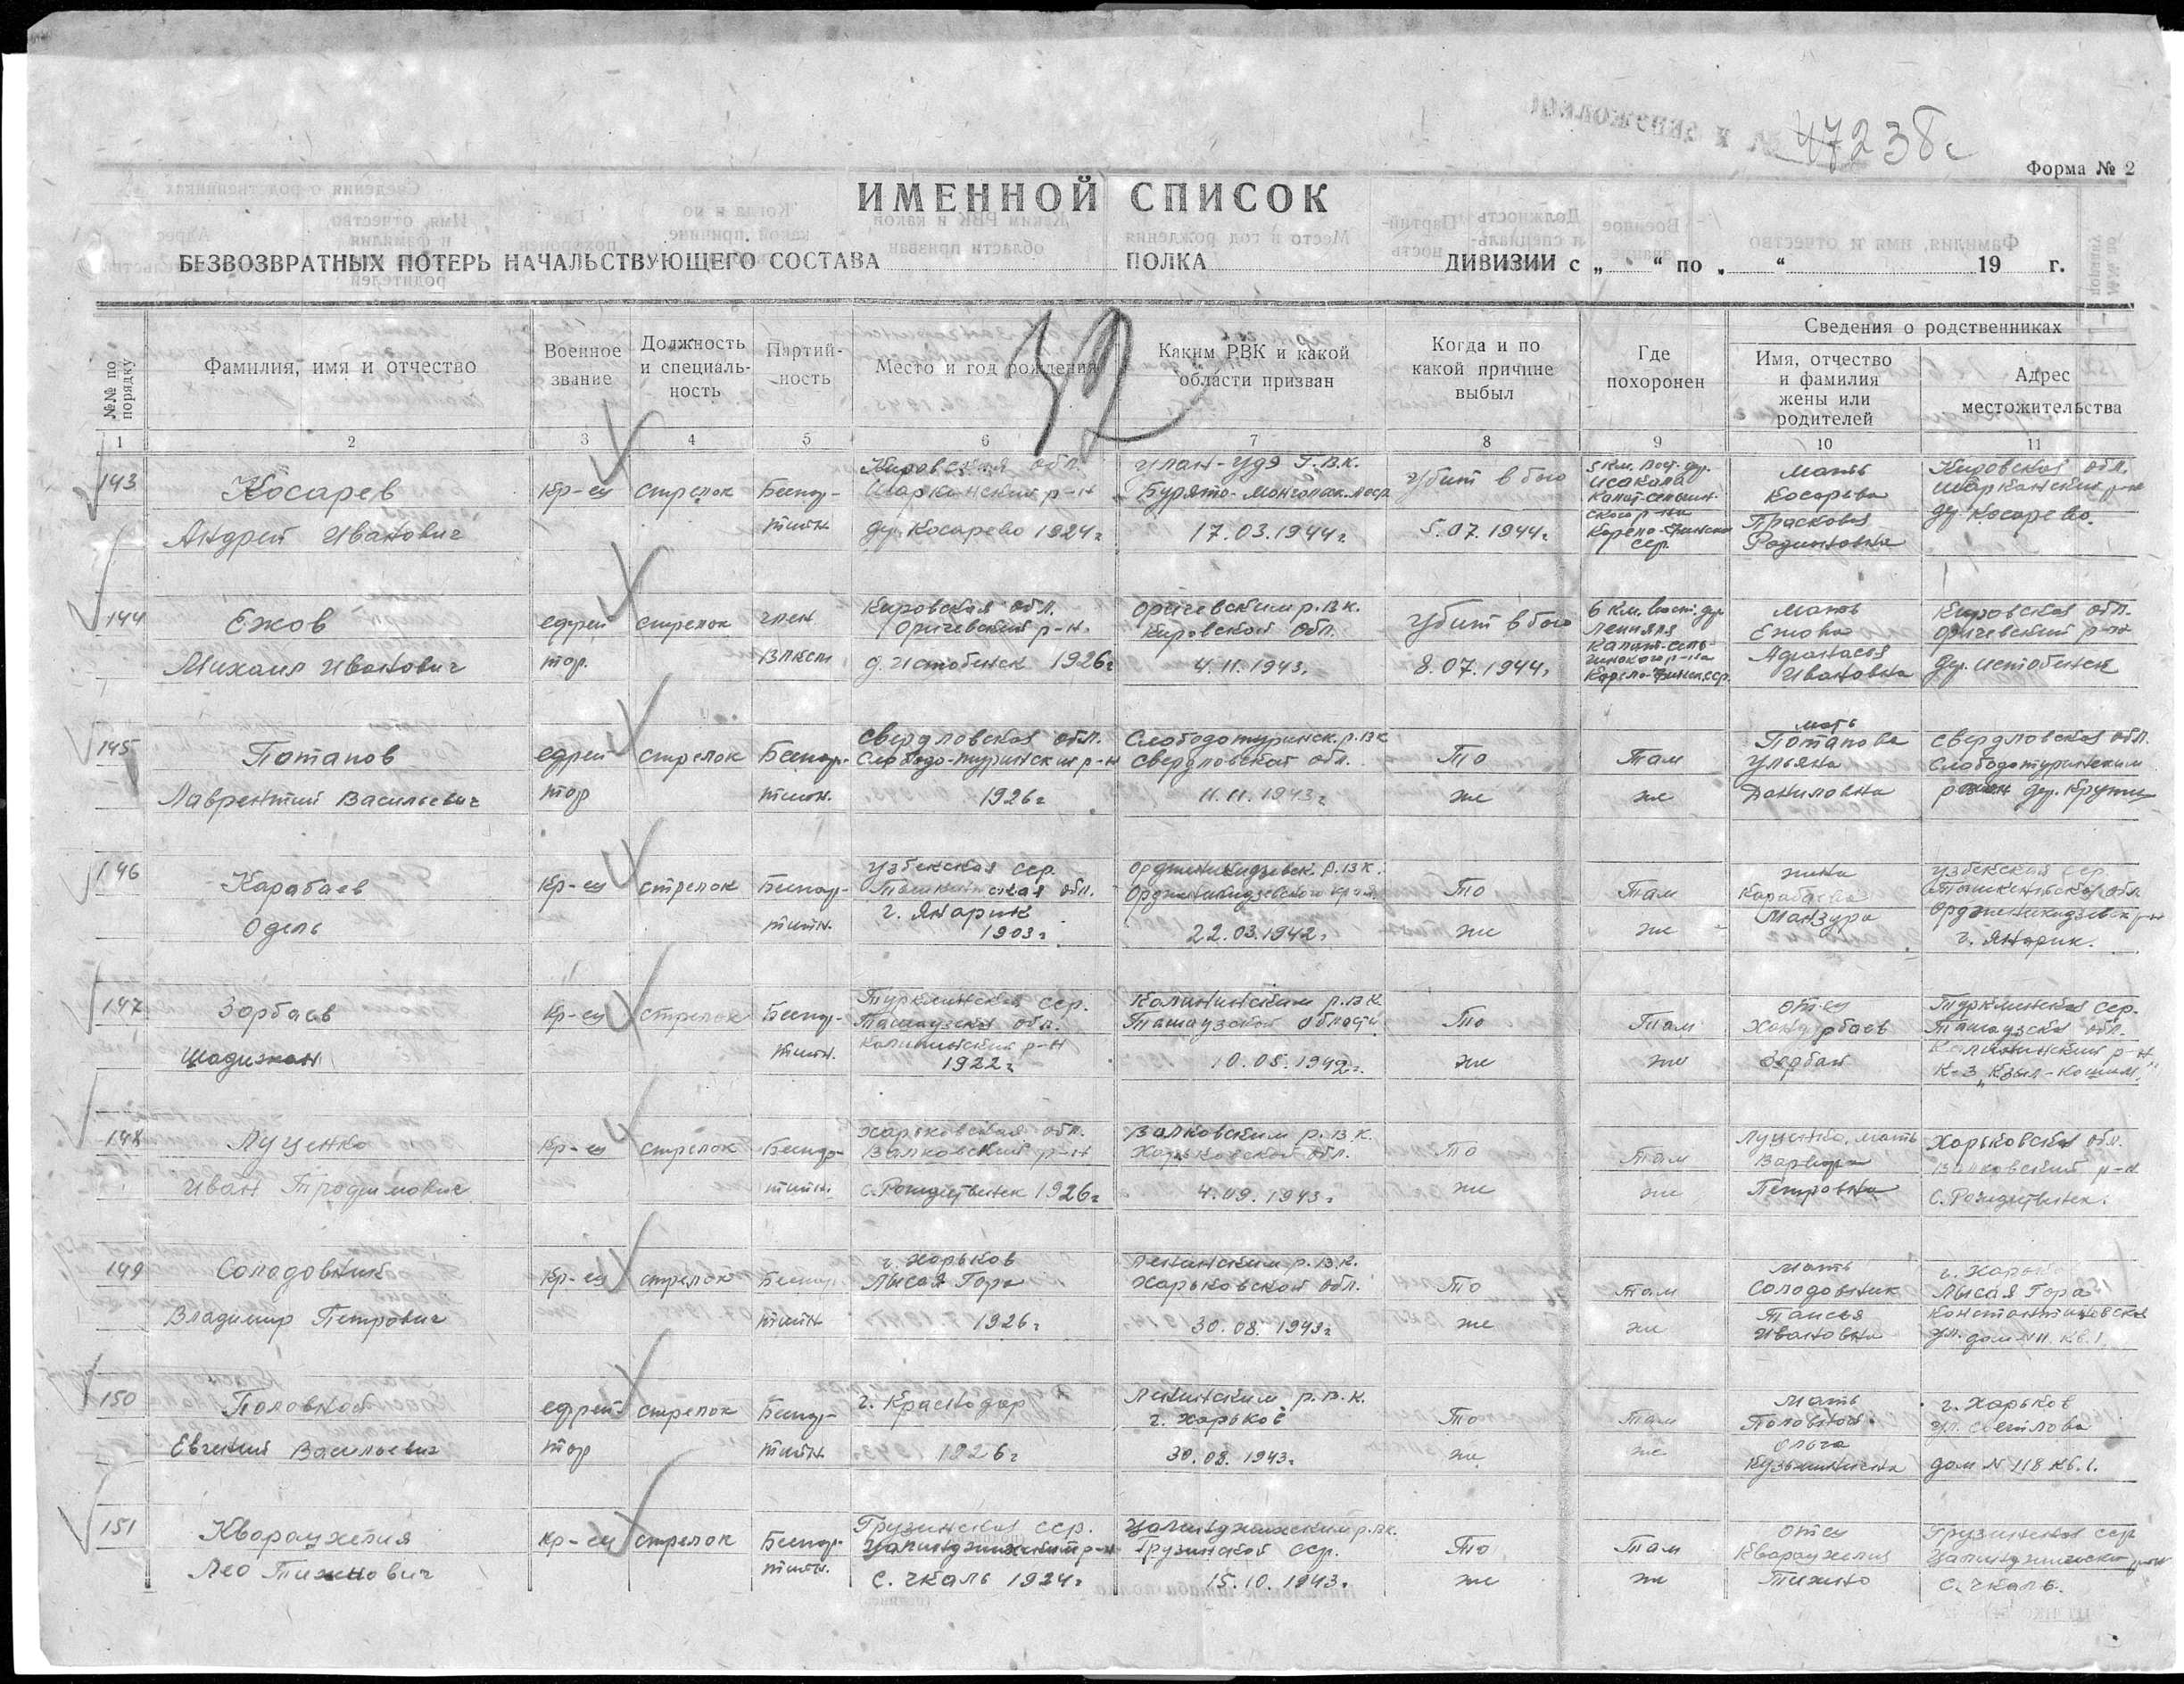 47238с
Форма № 2
ИМЕННОЙ СПИСОК
БЕЗВОЗВРАТНЫХ ПОТЕРЬ НАЧАЛЬСТВУЮЩЕГО СОСТАВА ПОЛКА ДИВИЗИИ с „ “ по „ “ 19 г.
№№ по порядку
Фамилия, имя и отчество
Военное звание
Должность и специальность
Партийность
Место и год рождения
Каким РВК и какой области призван
Когда и по какой причине выбыл
Где похоронен
Сведения о родственниках
Имя, отчество и фамилия жены или родителей
Адрес местожительства
1 2 3 4 5 6 7 8 9 10 11
143 Косарев кр-ец стрелок Беспар- Кировская обл. Улан-Удэ Г.В.К. Убит в бою 5 км. мать Кировская обл.
Шарканский р-н Бурято-Монгольск. Косарева Шарканский р-н
Андрей Иванович тийн. дер. Косарево 1924г. 17.03.1944г. 5.07.1944г. Карело-Финская сср. Прасковья Родионовна дер. Косарево.
144 Ежов ефрей стрелок член Кировская обл. Оричевским р.в.к. Убит в бою 6 км. вост. дер. мать Кировская обл.
Оричевский р-н. Кировской обл. Ежова Оричевский р-н
Михаил Иванович тор. ВЛКСМ д. Истобенск 1926г 4.11.1943г 8.07.1944г. Карело-Финск. сср. Афанасья Ивановна дер. Истобенск
145 Потапов ефрей стрелок Беспар- Свердловская обл. Слободотуринск. р.в.к. То Там мать Потапова Свердловская обл.
Слободо-туринский р-н Свердловской обл. Ульяна Слободотуринский
Лаврентий Васильевич тор тийн. 1926г 11.11.1943г же же Даниловна район дер.
146 Карабаев кр-ец стрелок Беспар- Узбекская сср. Орджоникидзевск. р.в.к. То Там жена Узбекская сср
Ташкентская обл. Карабаева Ташкентская обл.
Одель тийн. г. Янарик 1903г. 22.03.1942г. же же Манзура Орджоникидзевск р-н
г. Янарик.
147 Зорбаев кр-ец стрелок Беспар- Туркменская сср. Калининским р.в.к. То Там отец Туркменская сср.
Ташаузская обл. Ташаузской области Ташаузская обл.
Шадижан тийн. Калининский р-н 1922г. 10.05.1942г. же же Зорбай Калининский р-н
148 Луценко кр-ец стрелок Беспар- Харьковская обл. Валковским р.в.к. То Там Луценко, мать Харьковская обл.
Валковский р-н Харьковской обл. Варвара Валковский р-н
Иван Трофимович тийн. 1926г 4.09.1943г же же Петровна
149 Солодовник кр-ец стрелок Беспар- г. Харьков Ленинским р.в.к. То Там мать г. Харьков
Лысая Гора Харьковской обл. Солодовник Лысая Гора
Владимир Петрович тийн 1926г 30.08.1943г же же Таисья Ивановна Константиновская
ул. дом N 11. кв. 1.
150 Половной ефрей- стрелок Беспар- г. Краснодар Ленинским р.в.к. То Там мать г. Харьков
г. Харьков Половная ул. Свердлова
Евгений Васильевич тор тийн 1926г 30.08.1943г. же же Ольга Кузьминична дом N 118 кв. 1.
151 Кварацхелия кр-ец стрелок Беспар- Грузинская сср. р.в.к. То Там отец Грузинская сср
Грузинской сср. Кварацхелия
Лео тийн. с. Чкаль 1924г 15.10.1943г. же же с. Чкаль.